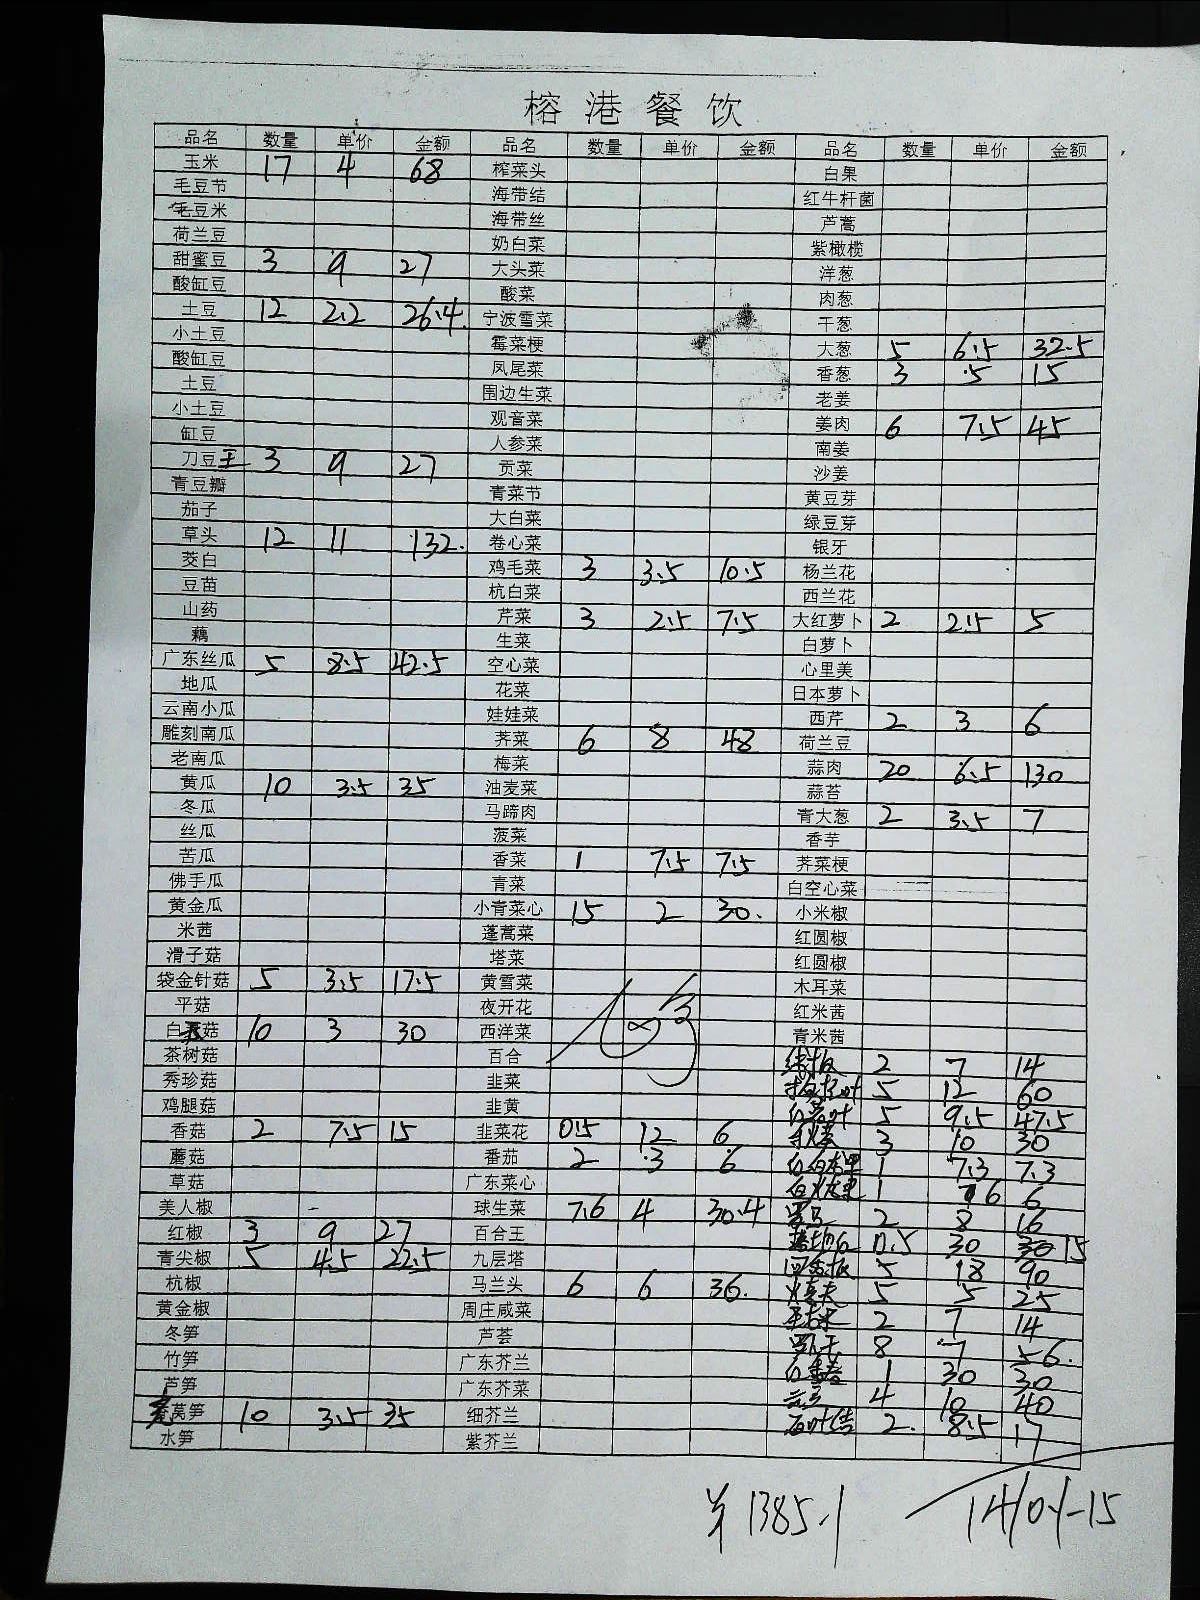 榕港餐饮
品名 数量 单价 金额 品名 数量 单价 金额 品名 数量 单价 金额
玉米 17 4 68 榨菜头 白果
毛豆节 海带结 红牛杆菌
毛豆米 海带丝 芦蒿
荷兰豆 奶白菜 紫橄榄
甜蜜豆 3 9 27 大头菜 洋葱
酸缸豆 酸菜 肉葱
土豆 12 2.2 26.4 宁波雪菜 干葱
小土豆 霉菜梗 大葱 5 6.5 32.5
酸缸豆 凤尾菜 香葱 3 .5 15
土豆 围边生菜 老姜
小土豆 观音菜 姜肉 6 7.5 45
缸豆 人参菜 南姜
刀豆王 3 9 27 贡菜 沙姜
青豆瓣 青菜节 黄豆芽
茄子 大白菜 绿豆芽
草头 12 11 132. 卷心菜 银牙
茭白 鸡毛菜 3 3.5 10.5 杨兰花
豆苗 杭白菜 西兰花
山药 芹菜 3 2.5 7.5 大红萝卜 2 2.5 5
藕 生菜 白萝卜
广东丝瓜 5 8.5 42.5 空心菜 心里美
地瓜 花菜 日本萝卜
云南小瓜 娃娃菜 西芹 2 3 6
雕刻南瓜 荠菜 6 8 48 荷兰豆
老南瓜 梅菜 蒜肉 20 6.5 130
黄瓜 10 3.5 35 油麦菜 蒜苔
冬瓜 马蹄肉 青大葱 2 3.5 7
丝瓜 菠菜 香芋
苦瓜 香菜 1 7.5 7.5 荠菜梗
佛手瓜 青菜 白空心菜
黄金瓜 小青菜心 15 2 30. 小米椒
米茜 蓬蒿菜 红圆椒
滑子菇 塔菜 红圆椒
袋金针菇 5 3.5 17.5 黄雪菜 木耳菜
平菇 夜开花 红米茜
白菇 10 3 30 西洋菜 青米茜
茶树菇 百合 2 7 14
秀珍菇 韭菜 5 12 60
鸡腿菇 韭黄 5 9.5 47.5
香菇 2 7.5 15 韭菜花 0.5 12 6 3 10 30
蘑菇 番茄 2 3 6 1 7.3 7.3
草菇 广东菜心 1 6 6
美人椒 球生菜 7.6 4 30.4 2 8 16
红椒 3 9 27 百合王 0.5 30 30 15
青尖椒 5 4.5 22.5 九层塔 5 18 90
杭椒 马兰头 6 6 36. 5 5 25
黄金椒 周庄咸菜 2 7 14
冬笋 芦荟 8 7 56.
竹笋 广东芥兰 1 30 30
芦笋 广东芥菜 4 10 40
莴笋 10 3.5 35 细芥兰 百叶结 2. 8.5 17
水笋 紫芥兰
1385.1 14/01-15